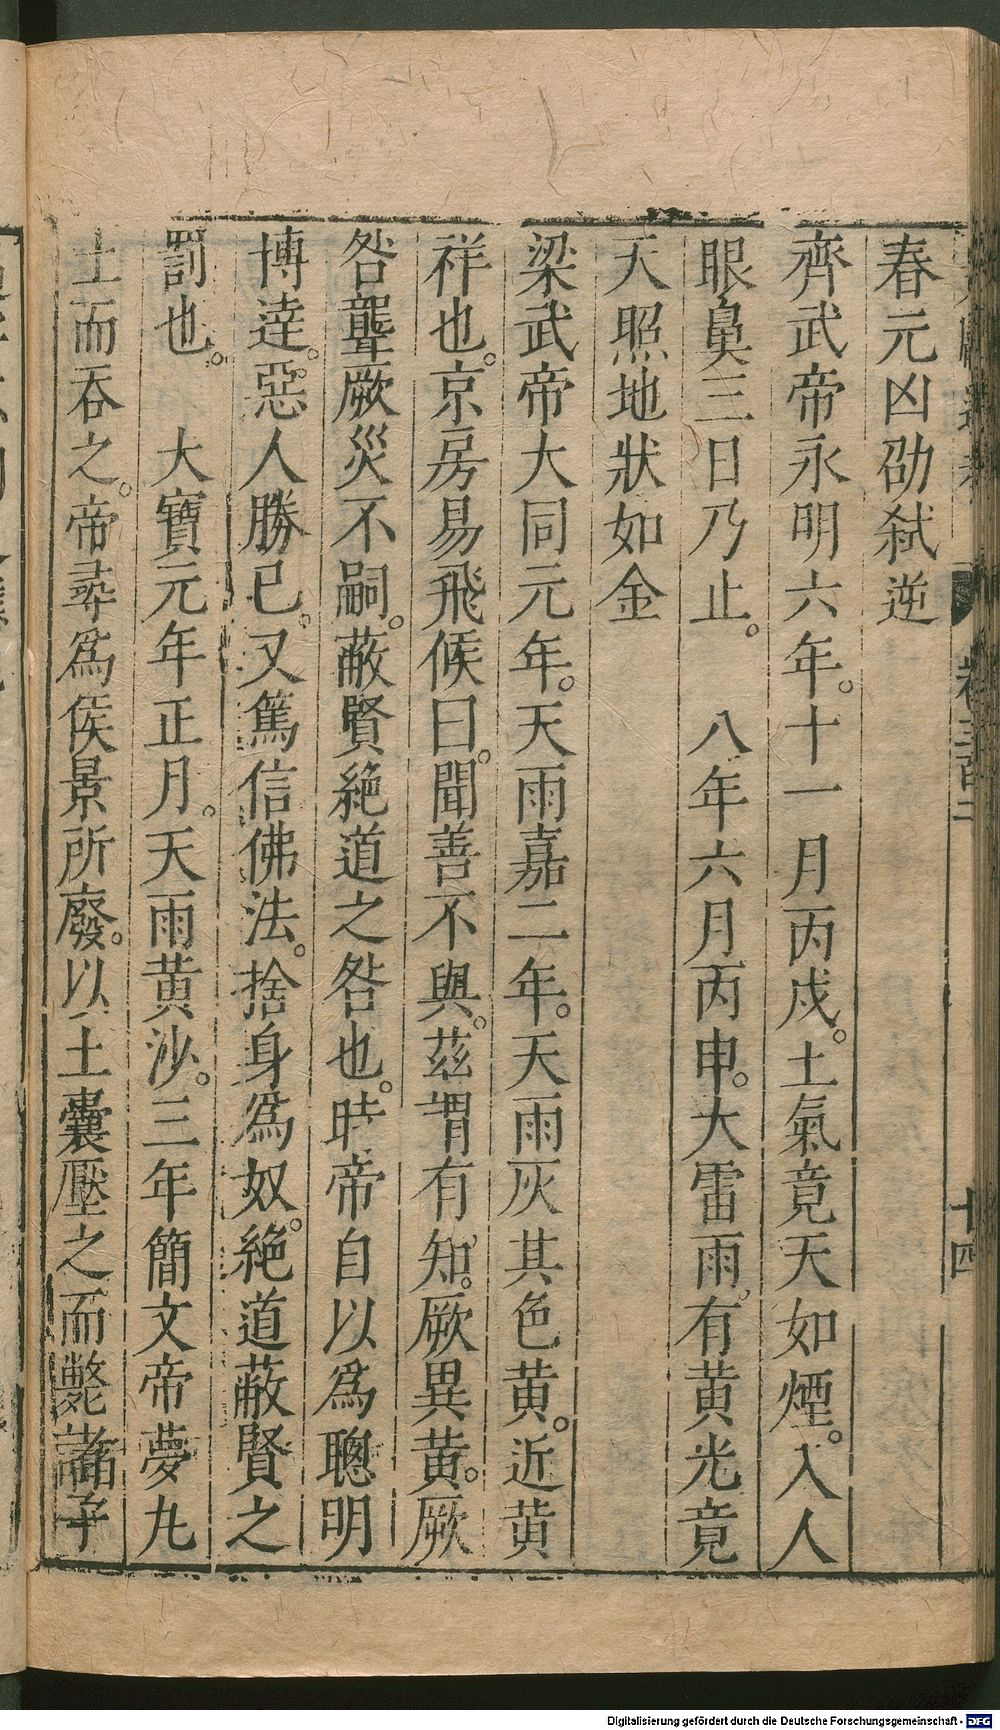 春元凶劭弑逆
齊武帝永明六年。十一月丙戌。土氣竟天如煙。入人
眼鼻三日乃止。　八年六月丙申。大雷雨。有黃光竟
天照地狀如金
梁武帝大同元年。天雨嘉二年。天雨灰其色黃。近黃
祥也。京房易飛候曰。聞善不與。茲謂有知。厥異黃。厥
咎聾厥災不嗣。蔽賢絶道之咎也。時帝自以爲聰明
博達。惡人勝己。又篤信佛法。捨身爲奴。絶道蔽賢之
罰也。　大寶元年正月。天雨黃沙。三年簡文帝夢丸
土而吞之。帝尋爲侯景所廢。以土囊壓之而斃諸子
卷三百二
十四
Digitalisierung gefördert durch die Deutsche Forschungsgemeinschaft - DFG